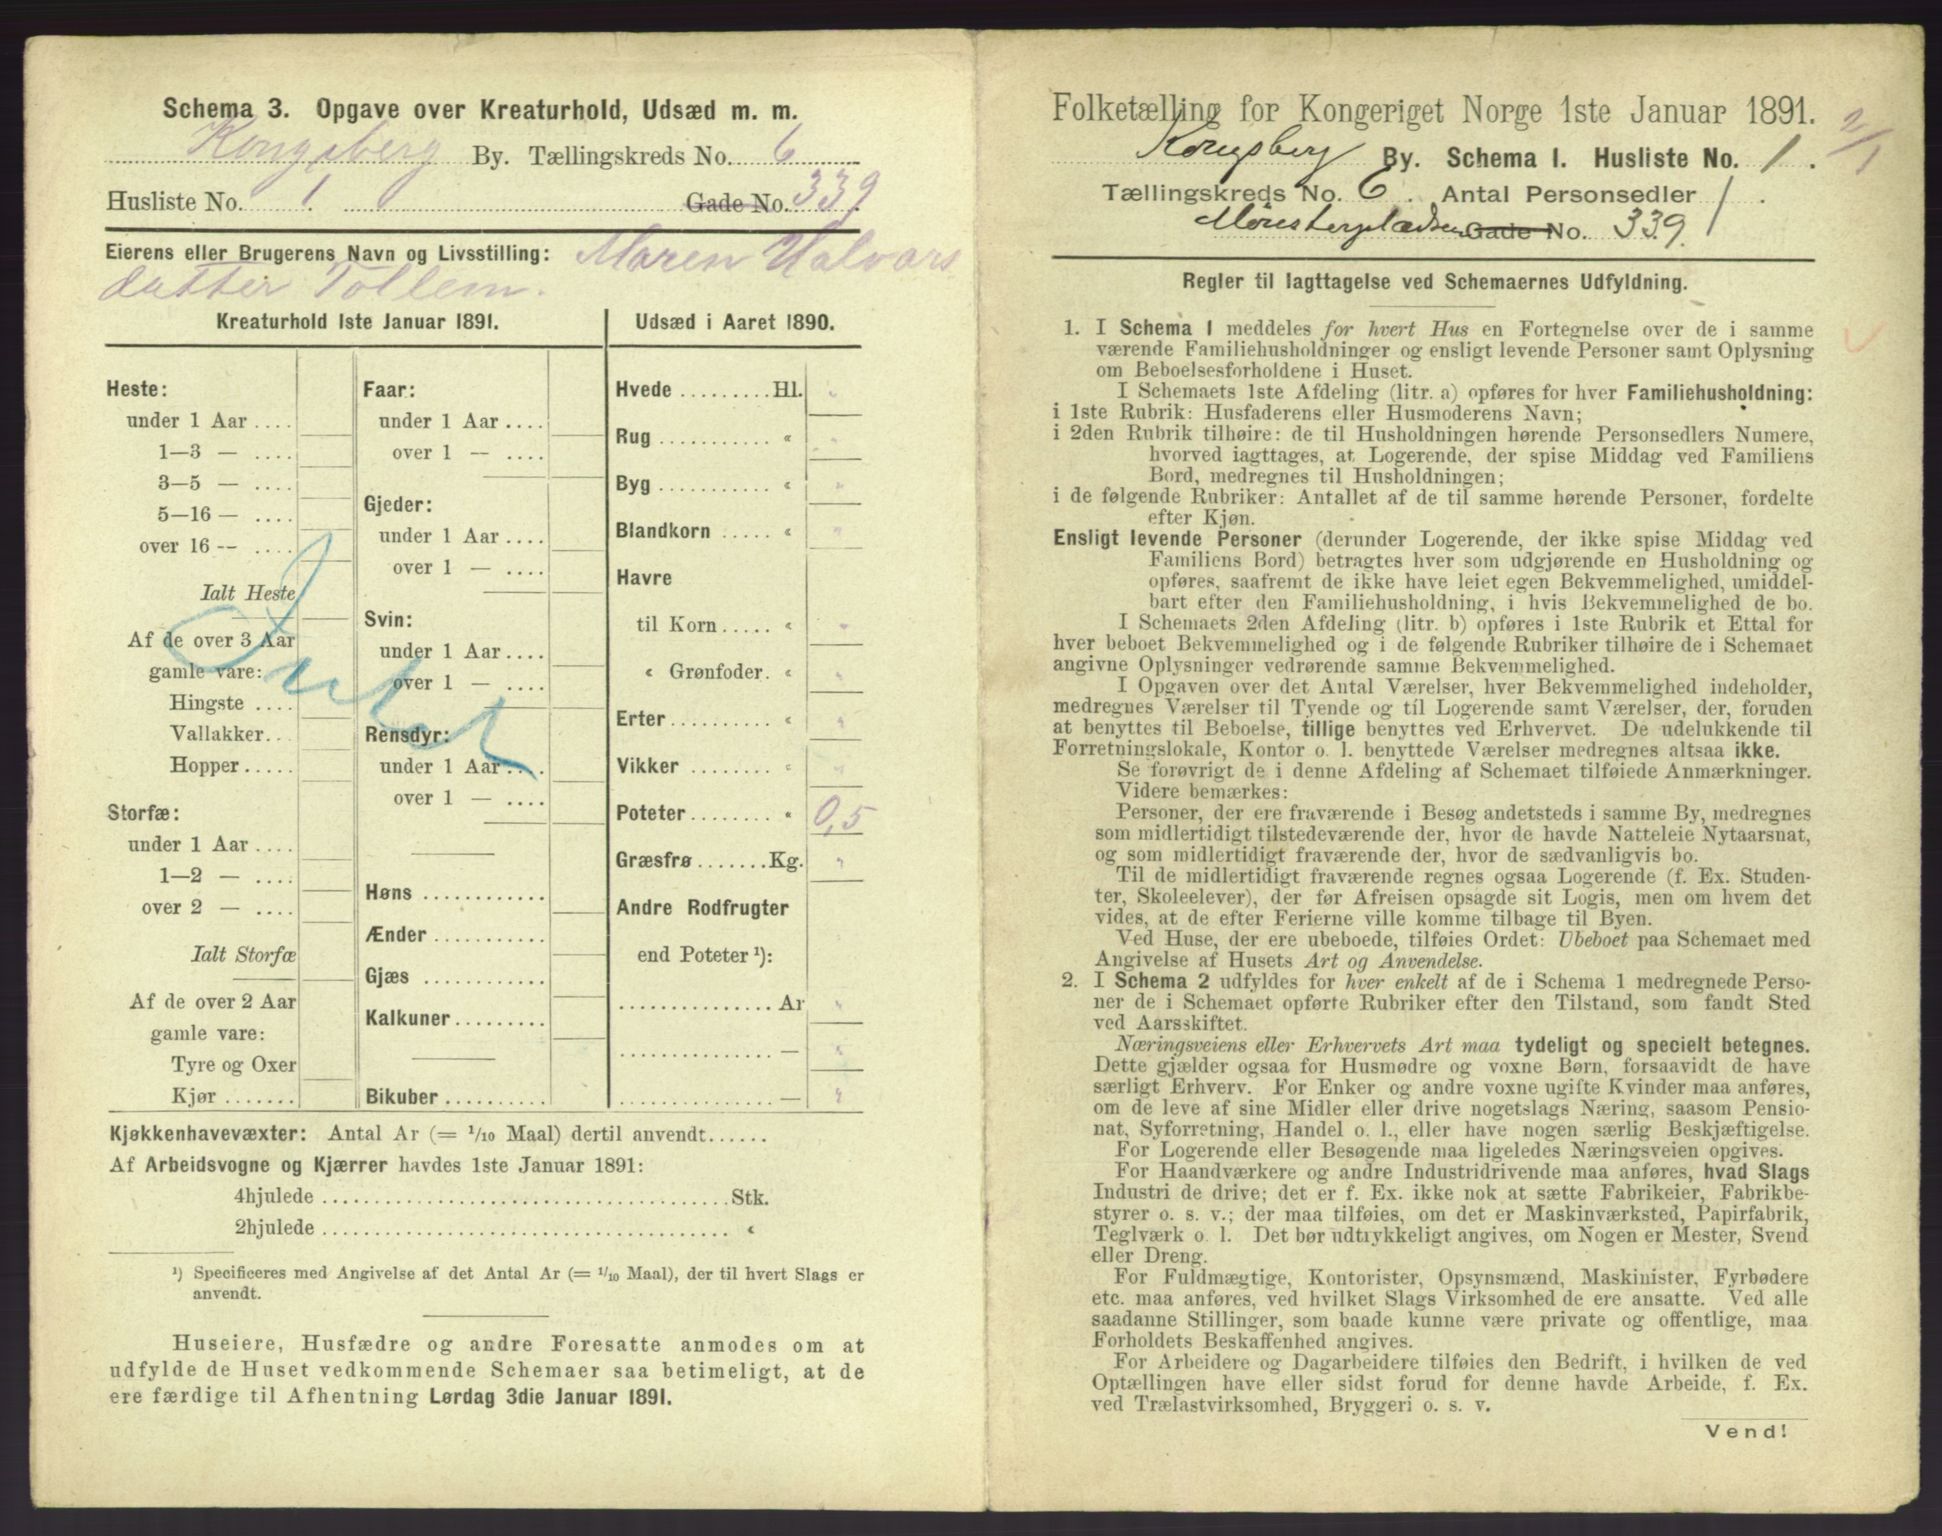 Schema 3. Opgave over Kreaturhold, Udsæd m. m.
Kongsberg By. Tællingskreds No. 6
Husliste No. 1. Gade No. 339.
Eierens eller Brugerens Navn og Livsstilling: Maren Halvors
datter Tollem.
Kreaturhold 1ste Januar 1891.
Heste:
under 1 Aar ....
1—3 — ....
3—5 — ....
5—16 — ....
over 16 — ....
Ialt Heste
Af de over 3 Aar
gamle vare:
Hingste ....
Vallakker...
Hopper.....
Storfæ:
under 1 Aar ....
1—2 — ....
over 2 — ....
Ialt Storfæ
Af de over 2 Aar
gamle vare:
Tyre og Oxer
Kjør .......
Faar:
under 1 Aar ....
over 1 — ....
Gjeder:
under 1 Aar ....
over 1 — ....
Svin:
under 1 Aar....
over 1 — ....
Rensdyr:
under 1 Aar....
over 1 — ....
Høns ............
Ænder ...........
Gjæs ............
Kalkuner.........
Bikuber ..........
Intet
Udsæd i Aaret 1890.
Hvede .........Hl. "
Rug ........... « "
Byg ........... « "
Blandkorn ..... « "
Havre
til Korn..... « "
« Grønfoder. « "
Erter.......... « "
Vikker ........ « "
Poteter........ « 0,5
Græsfrø.......Kg. "
Andre Rodfrugter
end Poteter ¹):
...............Ar "
...............— "
...............— "
Kjøkkenhavevæxter: Antal Ar (= 1/10 Maal) dertil anvendt......
Af Arbeidsvogne og Kjærrer havdes 1ste Januar 1891:
4hjulede ........................................Stk.
2hjulede ........................................ «
¹) Specificeres med Angivelse af det Antal Ar (= 1/10 Maal), der til hvert Slags er
anvendt.
Huseiere, Husfædre og andre Foresatte anmodes om at
udfylde de Huset vedkommende Schemaer saa betimeligt, at de
ere færdige til Afhentning Lørdag 3die Januar 1891.
Folketælling for Kongeriget Norge 1ste Januar 1891.
2/1
Kongsberg By. Schema I. Husliste No. 1.
Tællingskreds No. 6. Antal Personsedler 1.
Gade No. 339.
Regler til Iagttagelse ved Schemaernes Udfyldning.
1. I Schema I meddeles for hvert Hus en Fortegnelse over de i samme
værende Familiehusholdninger og ensligt levende Personer samt Oplysning
om Beboelsesforholdene i Huset.
I Schemaets 1ste Afdeling (litr. a) opføres for hver Familiehusholdning:
i 1ste Rubrik: Husfaderens eller Husmoderens Navn;
i 2den Rubrik tilhøire: de til Husholdningen hørende Personsedlers Numere,
hvorved iagttages, at Logerende, der spise Middag ved Familiens
Bord, medregnes til Husholdningen;
i de følgende Rubriker: Antallet af de til samme hørende Personer, fordelte
efter Kjøn.
Ensligt levende Personer (derunder Logerende, der ikke spise Middag ved
Familiens Bord) betragtes hver som udgjørende en Husholdning og
opføres, saafremt de ikke have leiet egen Bekvemmelighed, umiddel-
bart efter den Familiehusholdning, i hvis Bekvemmelighed de bo.
I Schemaets 2den Afdeling (litr. b) opføres i 1ste Rubrik et Ettal for
hver beboet Bekvemmelighed og i de følgende Rubriker tilhøire de i Schemaet
angivne Oplysninger vedrørende samme Bekvemmelighed.
I Opgaven over det Antal Værelser, hver Bekvemmelighed indeholder,
medregnes Værelser til Tyende og til Logerende samt Værelser, der, foruden
at benyttes til Beboelse, tillige benyttes ved Erhvervet. De udelukkende til
Forretningslokale, Kontor o. l. benyttede Værelser medregnes altsaa ikke.
Se forøvrigt de i denne Afdeling af Schemaet tilføiede Anmærkninger.
Videre bemærkes:
Personer, der ere fraværende i Besøg andetsteds i samme By, medregnes
som midlertidigt tilstedeværende der, hvor de havde Natteleie Nytaarsnat,
og som midlertidigt fraværende der, hvor de sædvanligvis bo.
Til de midlertidigt fraværende regnes ogsaa Logerende (f. Ex. Studen-
ter, Skoleelever), der før Afreisen opsagde sit Logis, men om hvem det
vides, at de efter Ferierne ville komme tilbage til Byen.
Ved Huse, der ere ubeboede, tilføies Ordet: Ubeboet paa Schemaet med
Angivelse af Husets Art og Anvendelse.
2. I Schema 2 udfyldes for hver enkelt af de i Schema 1 medregnede Perso-
ner de i Schemaet opførte Rubriker efter den Tilstand, som fandt Sted
ved Aarsskiftet.
Næringsveiens eller Erhvervets Art maa tydeligt og specielt betegnes.
Dette gjælder ogsaa for Husmødre og voxne Børn, forsaavidt de have
særligt Erhverv. For Enker og andre voxne ugifte Kvinder maa anføres,
om de leve af sine Midler eller drive nogetslags Næring, saasom Pensio-
nat, Syforretning, Handel o. l., eller have nogen særlig Beskjæftigelse.
For Logerende eller Besøgende maa ligeledes Næringsveien opgives.
For Haandværkere og andre Industridrivende maa anføres, hvad Slags
Industri de drive; det er f. Ex. ikke nok at sætte Fabrikeier, Fabrikbe-
styrer o. s. v.; der maa tilføies, om det er Maskinværksted, Papirfabrik,
Teglværk o. l. Det bør udtrykkeligt angives, om Nogen er Mester, Svend
eller Dreng.
For Fuldmægtige, Kontorister, Opsynsmænd, Maskinister, Fyrbødere
etc. maa anføres, ved hvilket Slags Virksomhed de ere ansatte. Ved alle
saadanne Stillinger, som baade kunne være private og offentlige, maa
Forholdets Beskaffenhed angives.
For Arbeidere og Dagarbeidere tilføies den Bedrift, i hvilken de ved
Optællingen have eller sidst forud for denne havde Arbeide, f. Ex.
ved Trælastvirksomhed, Bryggeri o. s. v.
Vend!